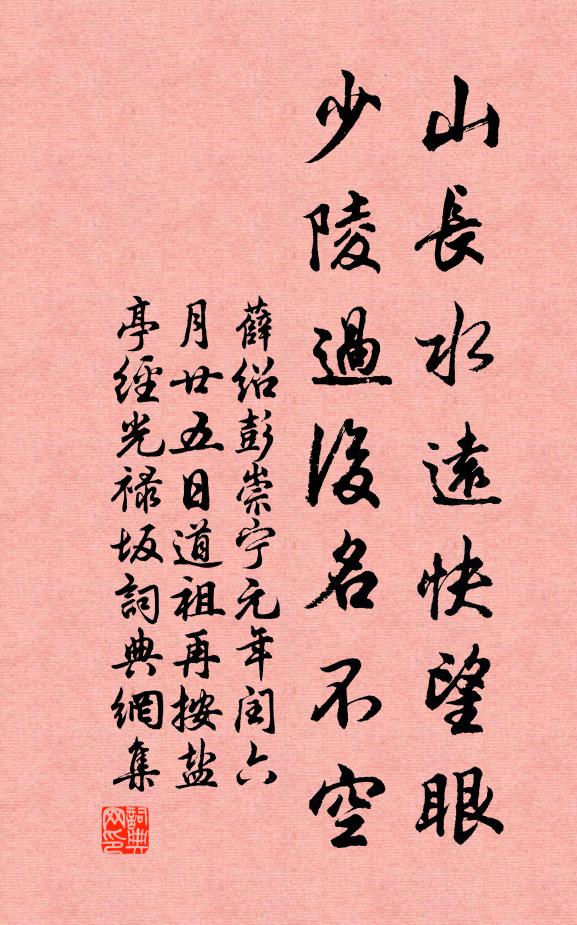 山長水遠快望眼
少陵過後名不空
薛紹彭崇宁元年閏六
月廿五日道祖再按盐
亭經光禄坂詞典網集
詞典网印